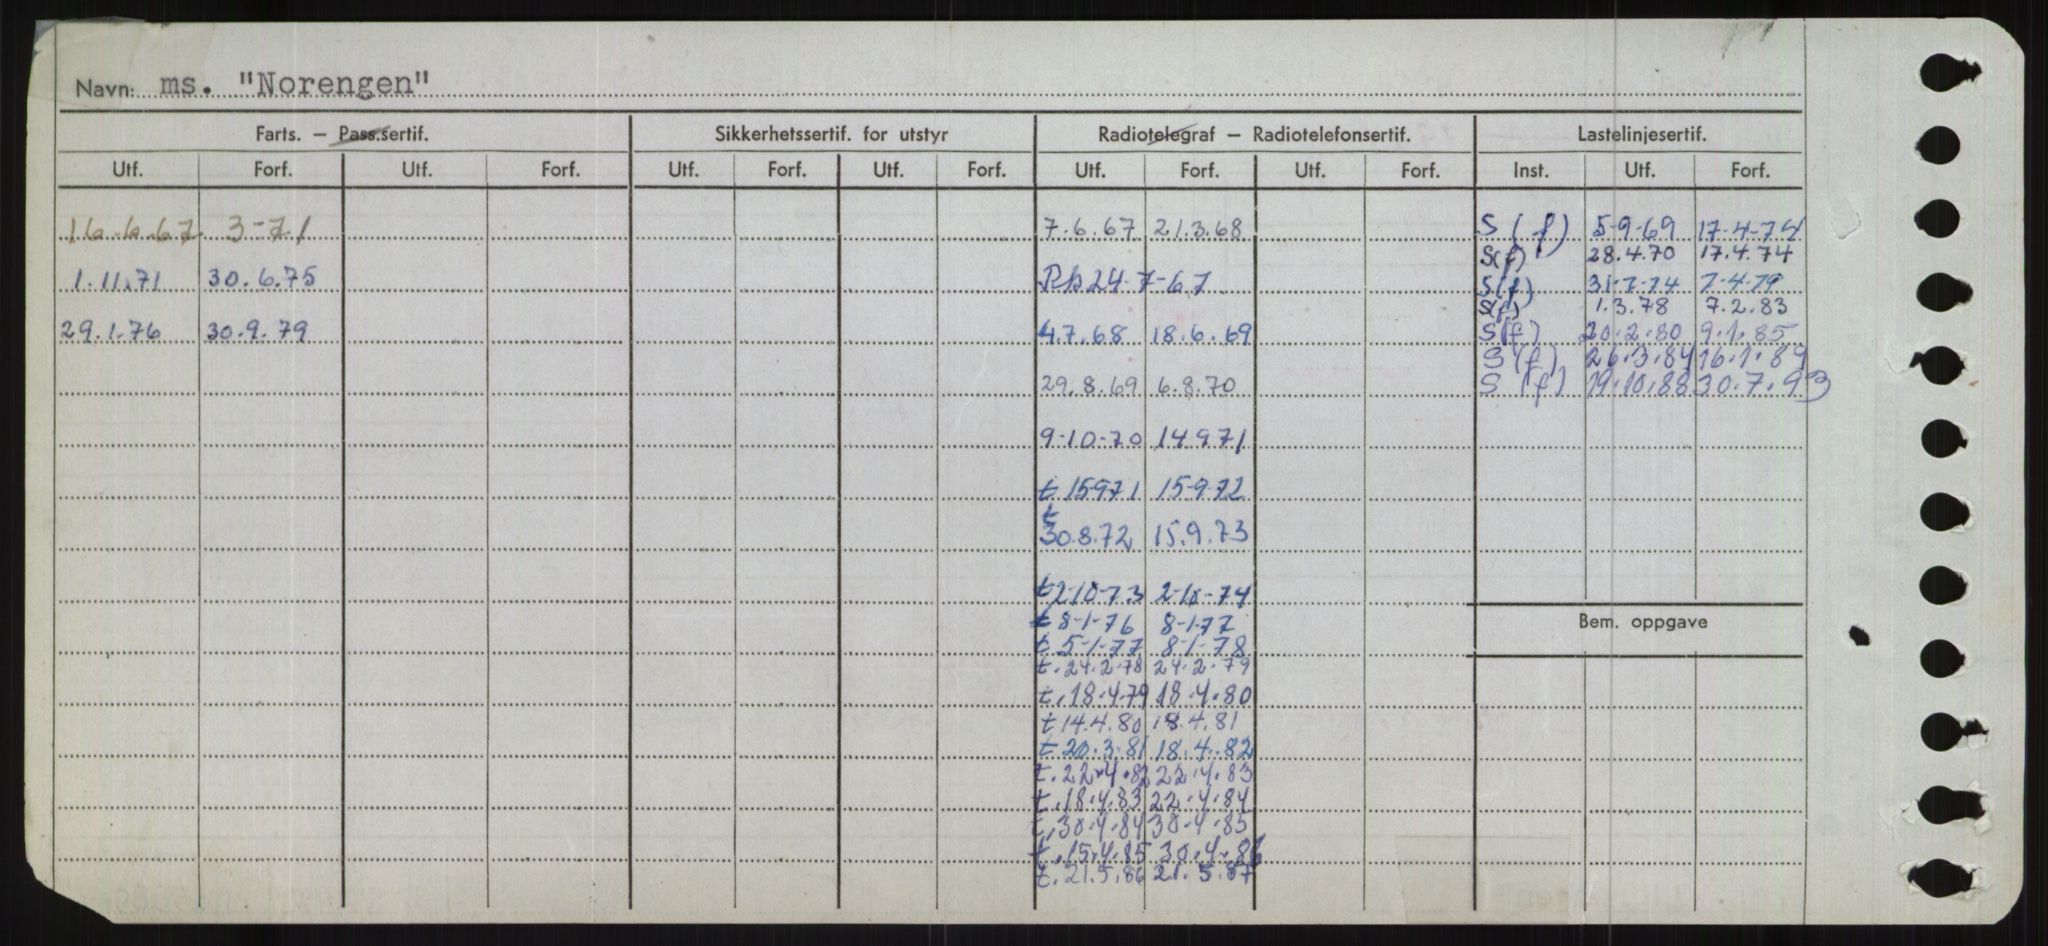 Navn: ms. "Norengen"
Farts. — Pass.sertif. Sikkerhetssertif. for utstyr Radiotelegraf — Radiotelefonsertif. Lastelinjesertif.
Utf. Forf. Utf. Forf. Utf. Forf. Utf. Forf. Utf. Forf. Utf. Forf. Inst. Utf. Forf.
16-6-67 3-71 7.6.67 21.3.68 S(f) 5-9-69 17-4-74
S(f) 28.4.70 17.4.74
1.11.71 30.6.75 24-7-67 S(f) 31-7-74 7-4-79
S(f) 1.3.78 7.2.83
29.1.76 30.9.79 4.7.68 18.6.69 S(f) 20.2.80 9.1.85
S(f) 26.3.84 16.1.89
29.8.69 6.8.70 S(f) 19.10.88 30.7.93
9-10-70 14.9.71
t 15971 15-9-72
t
30.8.72 15.9.73
t 2-10-73 2-10-74
t 8-1-76 8-1-77 Bem. oppgave
t 5-1-77 8-1-78
t. 24.2.78 24.2.79
t. 18.4.79 18.4.80
t 14.4.80 18.4.81
t 20.3.81 18.4.82
t. 22.4.82 22.4.83
t. 18.4.83 22.4.84
t. 30.4.84 30.4.85
t. 15.4.85 30.4.86
t. 21.5.86 21.5.87